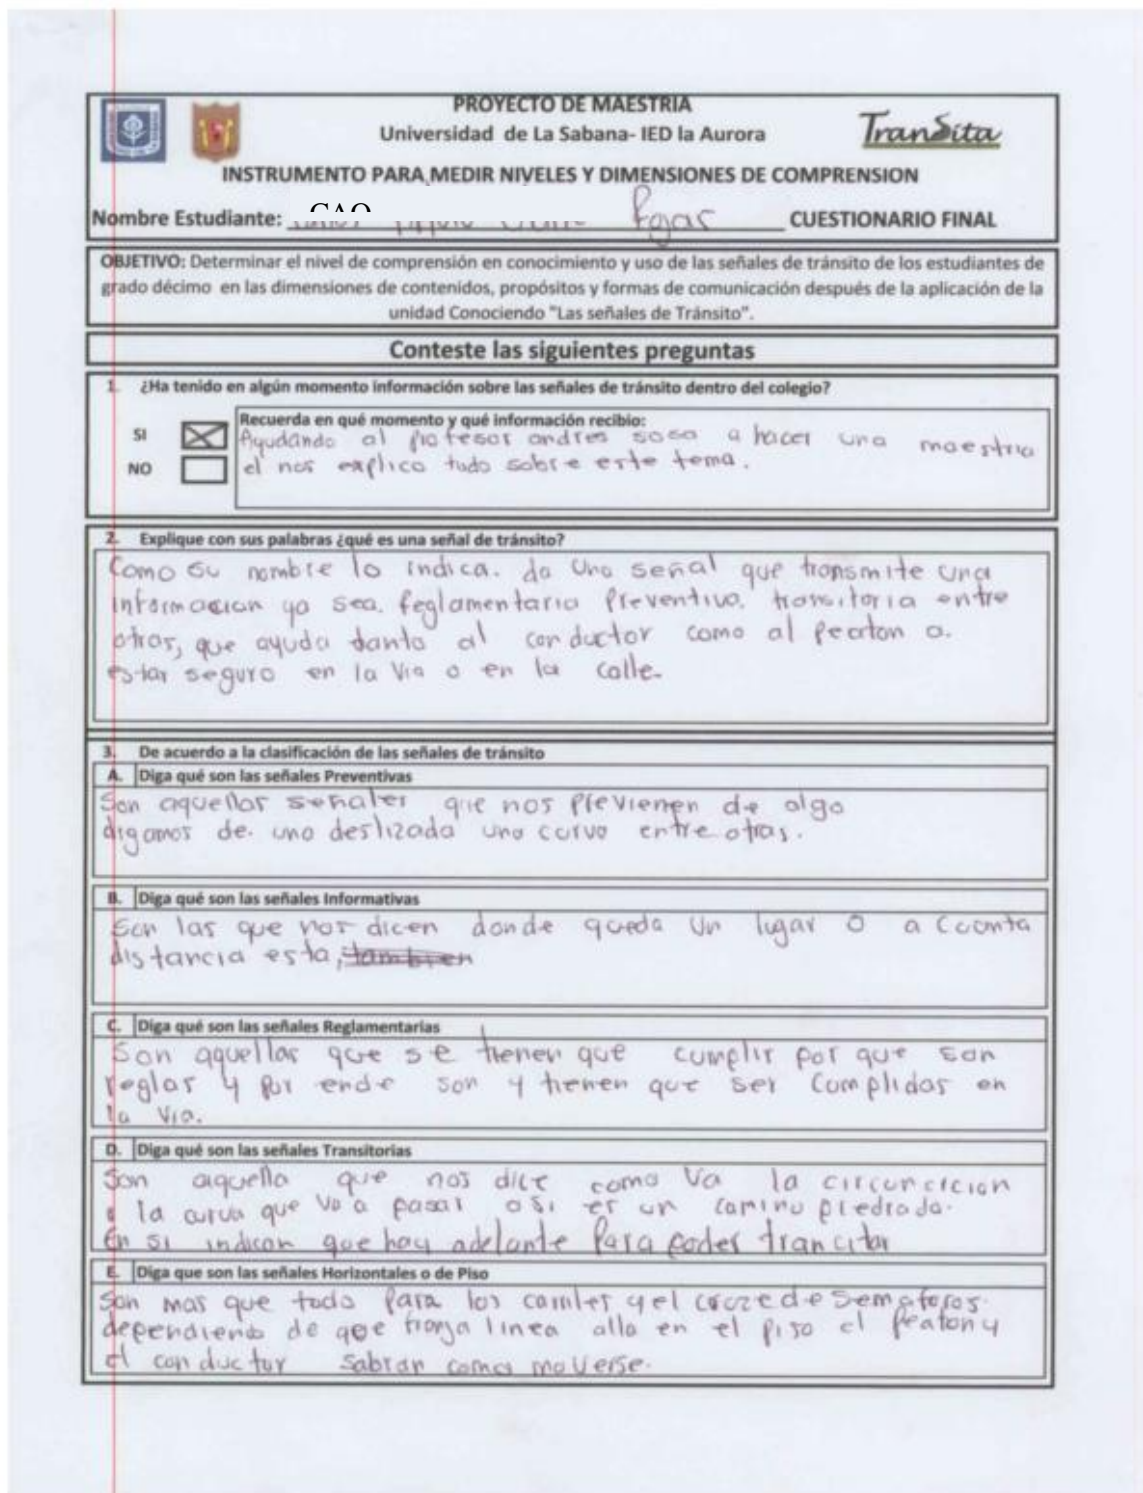 PROYECTO DE MAESTRIA
Universidad de La Sabana- IED la Aurora
TranSita
INSTRUMENTO PARA MEDIR NIVELES Y DIMENSIONES DE COMPRENSION
Nombre Estudiante: CAO CUESTIONARIO FINAL
OBJETIVO: Determinar el nivel de comprensión en conocimiento y uso de las señales de tránsito de los estudiantes de
grado décimo en las dimensiones de contenidos, propósitos y formas de comunicación después de la aplicación de la
unidad Conociendo "Las señales de Tránsito".
Conteste las siguientes preguntas
1. ¿Ha tenido en algún momento información sobre las señales de tránsito dentro del colegio?
SI
NO
Recuerda en qué momento y qué información recibio:
Ayudando al profesor andres sosa a hacer una maestria
el nos explico todo sobre este tema.
2. Explique con sus palabras ¿qué es una señal de tránsito?
Como su nombre lo indica. da una señal que transmite una
informacion ya sea. Reglamentaria Preventiva. transitoria entre
otras, que ayuda tanto al conductor como al peaton a.
estar seguro en la via o en la calle.
3. De acuerdo a la clasificación de las señales de tránsito
A. Diga qué son las señales Preventivas
Son aquellas señales que nos previenen de algo
digamos de. una deslizada una curva entre otras.
B. Diga qué son las señales Informativas
Son las que nos dicen donde queda un lugar o a cuanta
distancia esta, tambien
C. Diga qué son las señales Reglamentarias
Son aquellas que se tienen que cumplir por que son
reglas y por ende son y tienen que ser cumplidas en
la via.
D. Diga qué son las señales Transitorias
Son aquella que nos dice como va la
la curva que va a pasar o si es un camino piedrado.
En si indican que hay adelante para poder trancitar
E. Diga que son las señales Horizontales o de Piso
Son mas que todo para los y el cruze de semaforos.
dependiendo de que franja linea alla en el piso el peaton y
el conductor sabran como moverse.